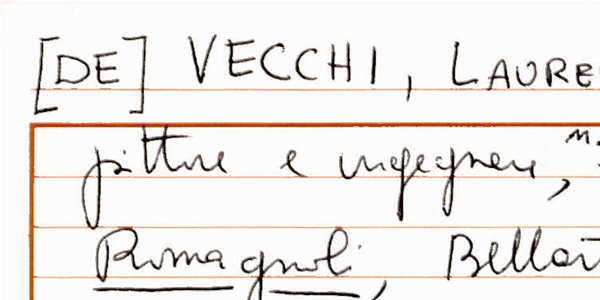 [DE] VECCHI, LAURE
pittore e ingegnere, n.
Romagnoli, Bellar